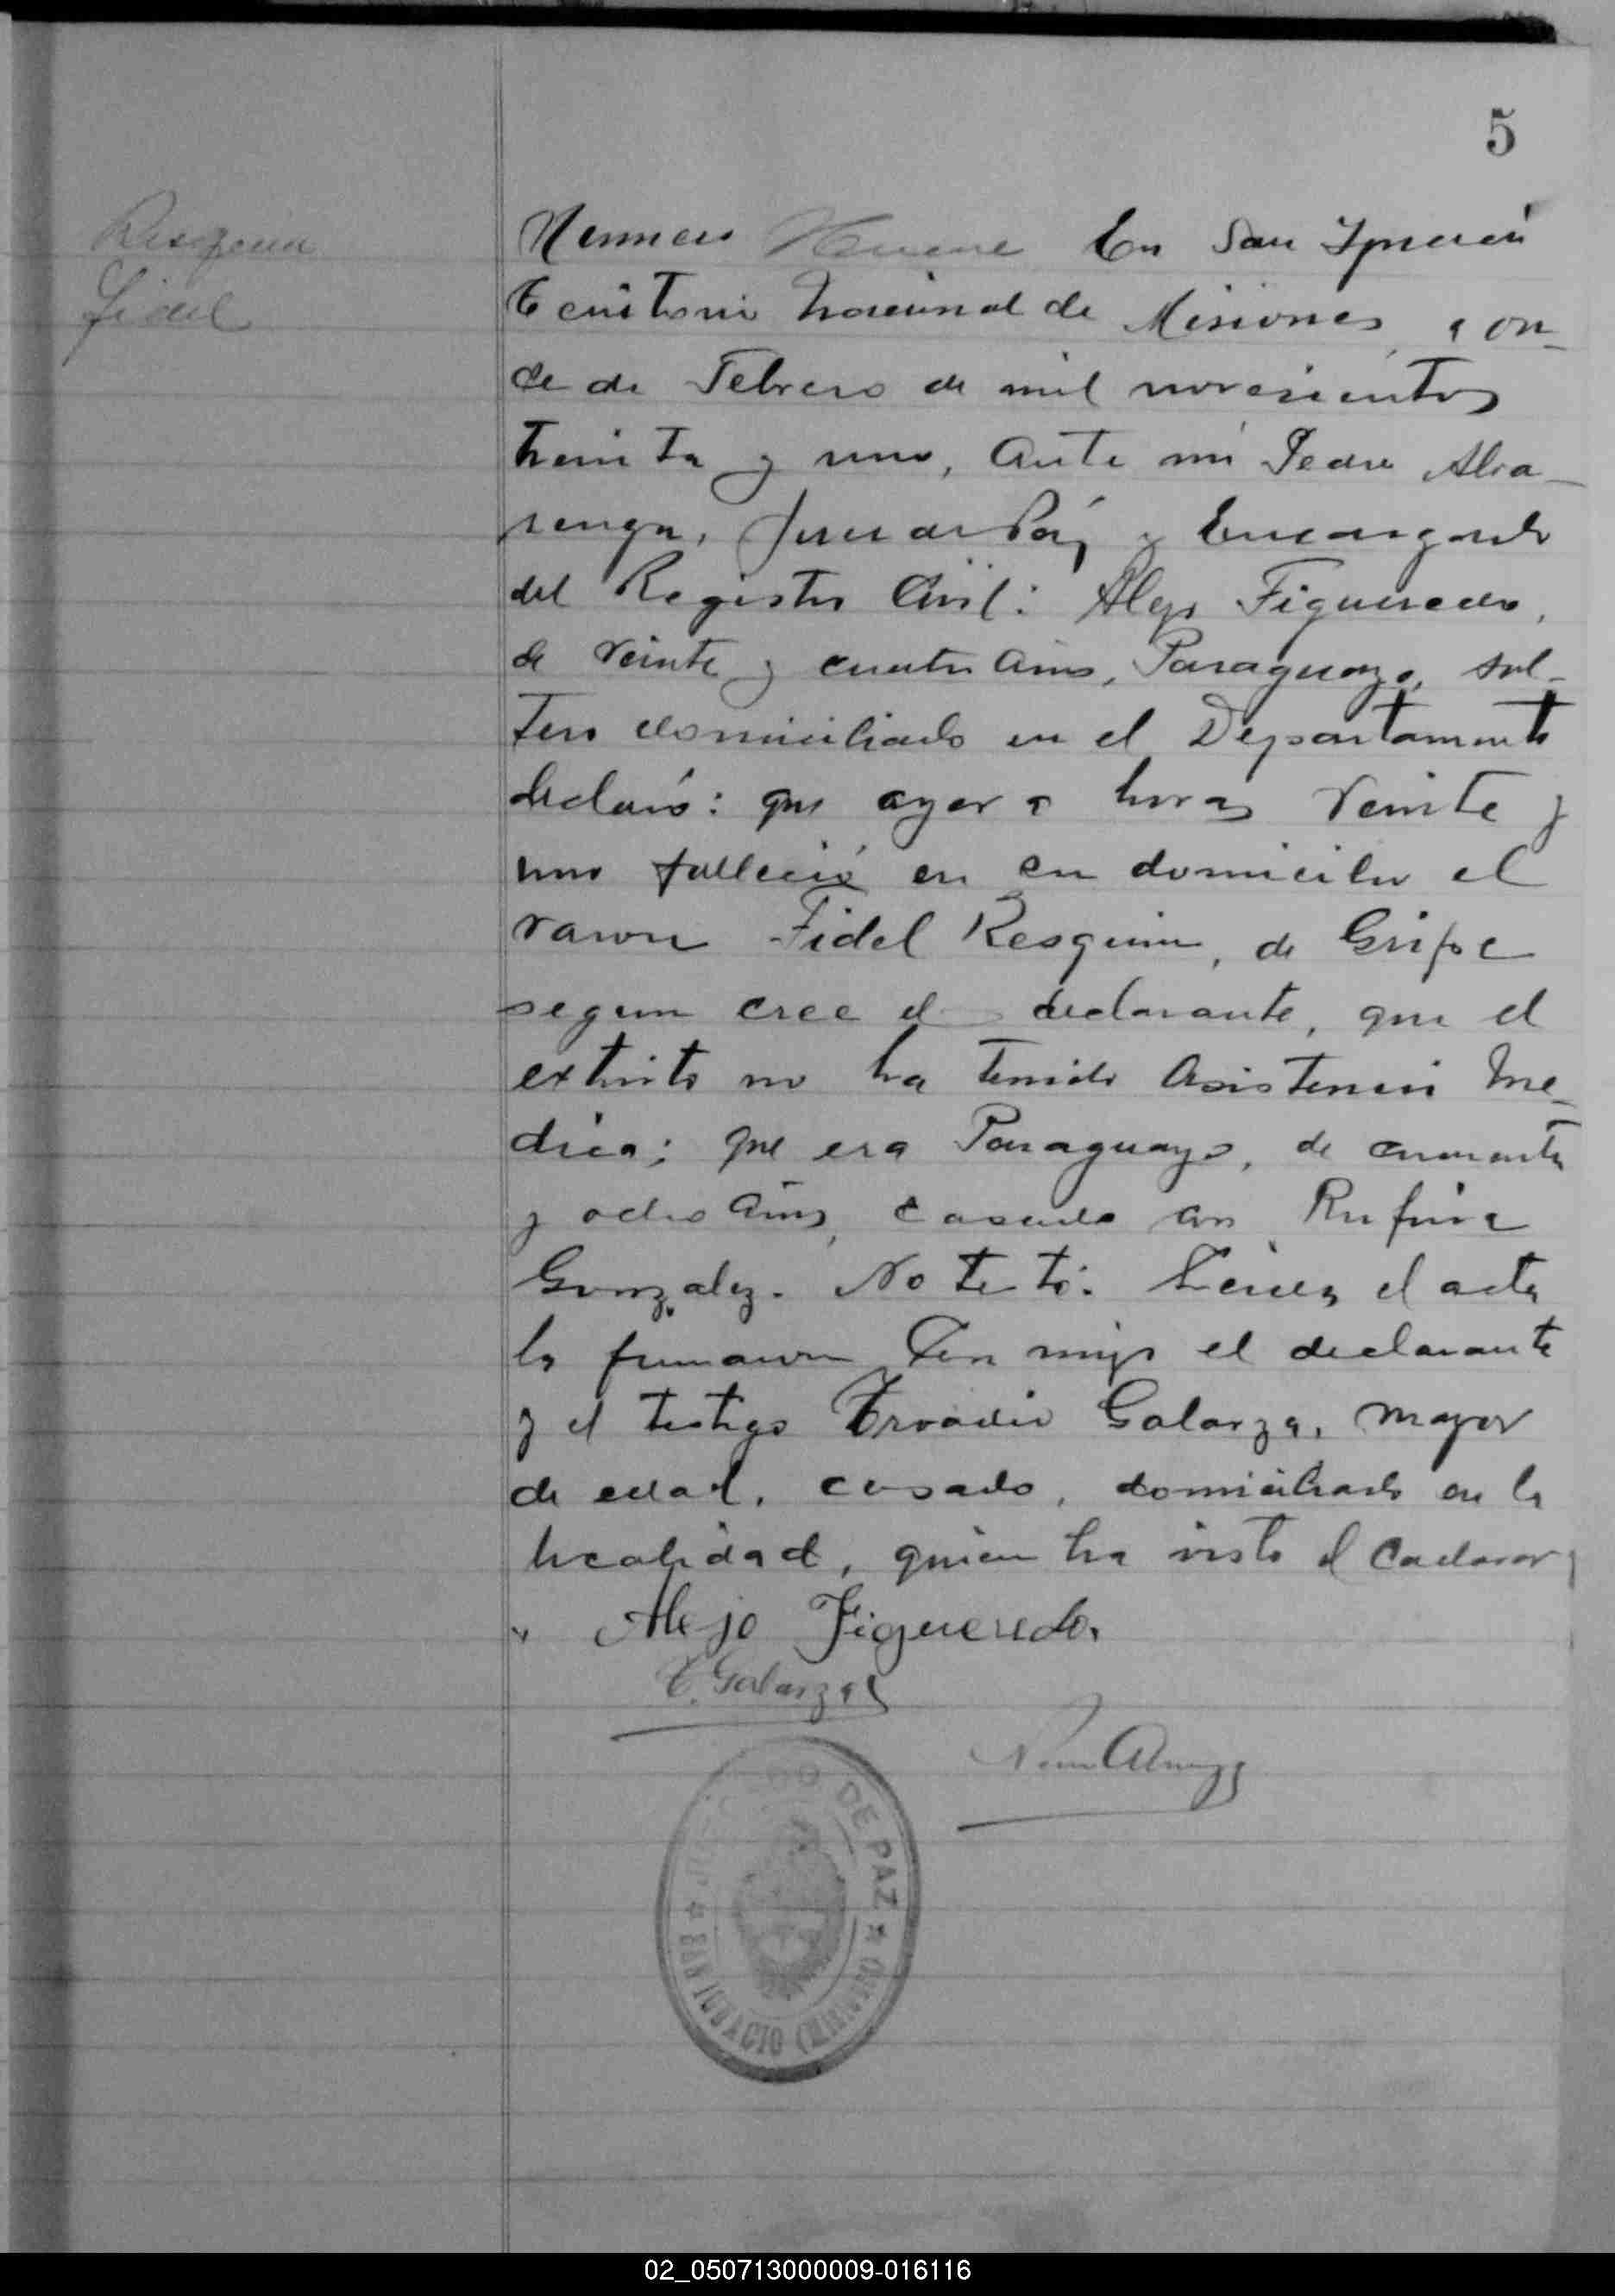 5
Resquin
Fidel
Numero Nueve En San Ignacio
Territorio Nacional de Misiones, a on-
ce de Febrero de mil novecientos
treinta y uno, ante mi Pedro Alva-
renga, Juez de Paz y Encargado
del Registro Civil: Alejo Figueredo,
de veinte y cuatro años, Paraguayo, sol-
tero domiciliado en el Departamento
declaró: que ayer a horas veinte y
uno falleció en su domicilio el
varon Fidel Resquin, de Gripe
segun cree el declarante, que el
extinto no ha tenido asistencia Me-
dica; que era Paraguayo, de cuarenta
y ocho años, casado con Rufina
Gonzalez. No testó. Leida el acta
la firmaron con migo el declarante
y el testigo Troadio Galarza, mayor
de edad, casado, domiciliado en la
localidad, quien ha visto el cadaver
Alejo Figueredo.
T. Galarza
DE PAZ
SAN IGNACIO (MISIONES)
02_050713000009-016116